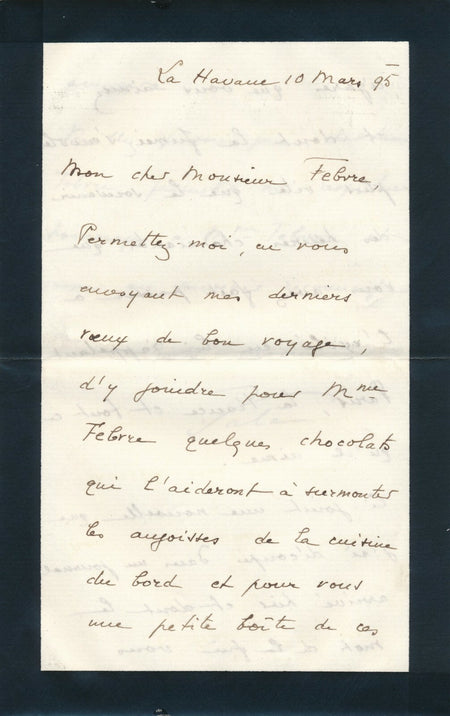 La Havane 10 Mars 95
Mon cher Monsieur Febvre,
Permettez-moi, en vous
envoyant mes derniers
vœux de bon voyage,
d'y joindre pour Mme
Febvre quelques chocolats
qui l'aideront à surmonter
les angoisses de la cuisine
du bord et pour vous
une petite boîte de ces